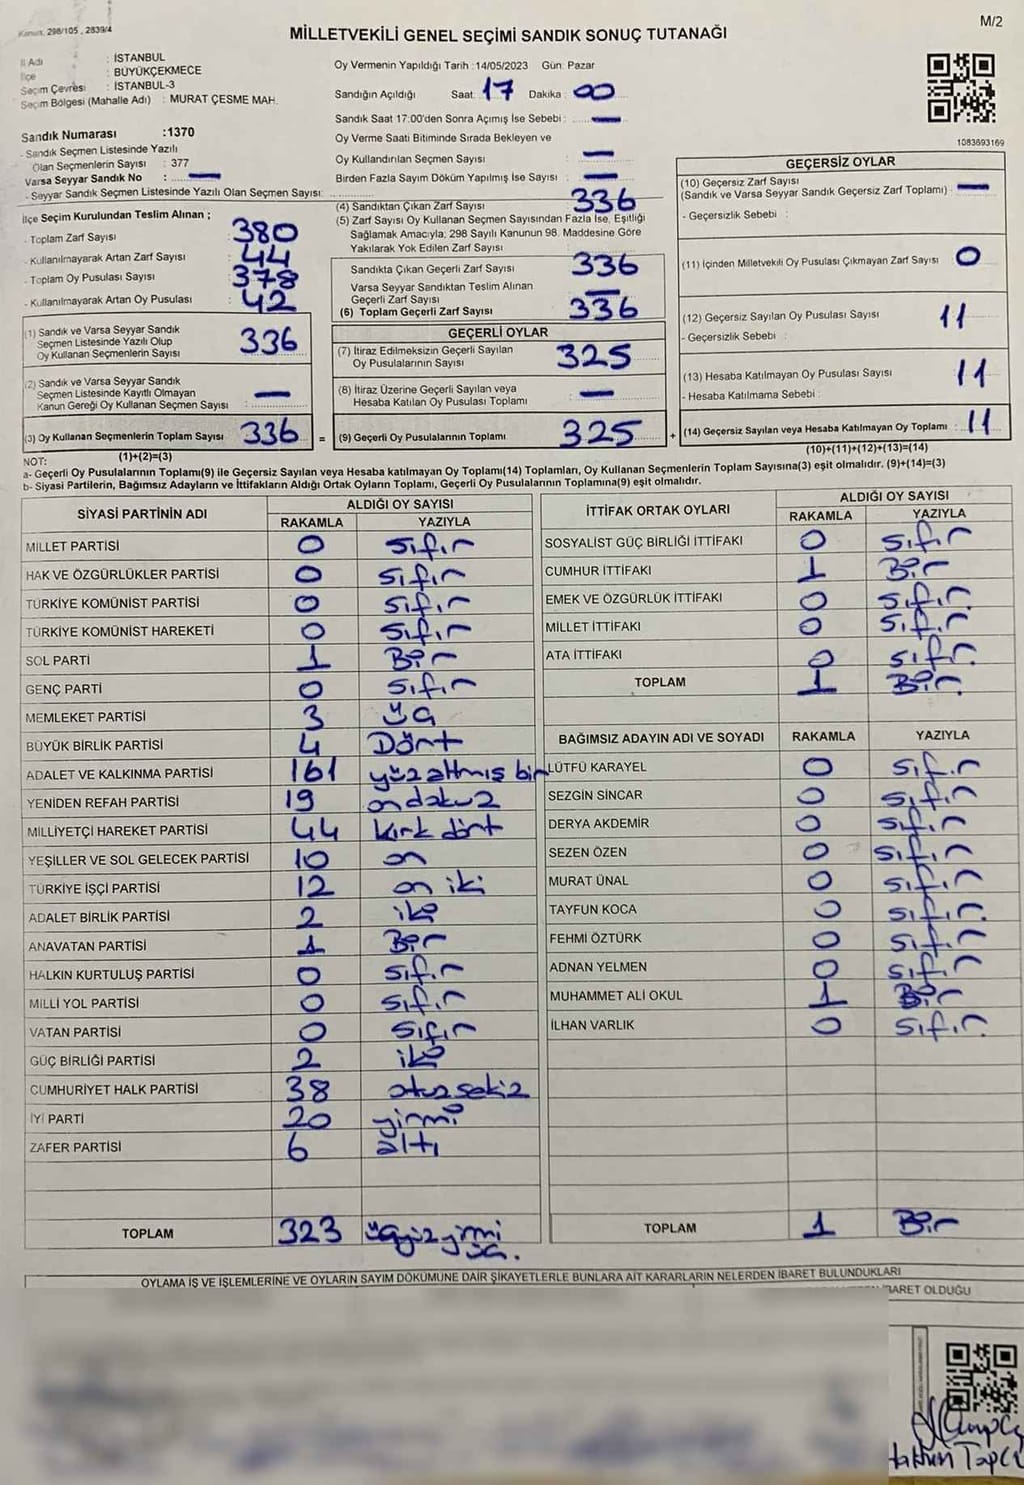 Kanun, 298/105 , 2839/4
MİLLETVEKİLİ GENEL SEÇİMİ SANDIK SONUÇ TUTANAĞI
M/2
İl Adı : İSTANBUL
İlçe : BÜYÜKÇEKMECE
Seçim Çevresi : İSTANBUL-3
Seçim Bölgesi (Mahalle Adı) : MURAT ÇESME MAH.
Sandık Numarası :1370
- Sandık Seçmen Listesinde Yazılı
Olan Seçmenlerin Sayısı : 377
Varsa Seyyar Sandık No : —
- Seyyar Sandık Seçmen Listesinde Yazılı Olan Seçmen Sayısı:
Oy Vermenin Yapıldığı Tarih :14/05/2023 Gün: Pazar
Sandığın Açıldığı Saat: 17 Dakika: 00
Sandık Saat 17:00'den Sonra Açımış İse Sebebi : —
Oy Verme Saati Bitiminde Sırada Bekleyen ve
Oy Kullandırılan Seçmen Sayısı : —
Birden Fazla Sayım Döküm Yapılmış İse Sayısı : —
1083693169
İlçe Seçim Kurulundan Teslim Alınan ;
- Toplam Zarf Sayısı : 380
- Kullanılmayarak Artan Zarf Sayısı : 44
- Toplam Oy Pusulası Sayısı : 378
- Kullanılmayarak Artan Oy Pusulası : 42
(1) Sandık ve Varsa Seyyar Sandık
Seçmen Listesinde Yazılı Olup
Oy Kullanan Seçmenlerin Sayısı : 336
(2) Sandık ve Varsa Seyyar Sandık
Seçmen Listesinde Kayıtlı Olmayan
Kanun Gereği Oy Kullanan Seçmen Sayısı : —
(3) Oy Kullanan Seçmenlerin Toplam Sayısı : 336 =
(1)+(2)=(3)
(4) Sandıktan Çıkan Zarf Sayısı : 336
(5) Zarf Sayısı Oy Kullanan Seçmen Sayısından Fazla İse, Eşitliği
Sağlamak Amacıyla; 298 Sayılı Kanunun 98. Maddesine Göre
Yakılarak Yok Edilen Zarf Sayısı :
Sandıkta Çıkan Geçerli Zarf Sayısı : 336
Varsa Seyyar Sandıktan Teslim Alınan
Geçerli Zarf Sayısı : —
(6) Toplam Geçerli Zarf Sayısı : 336
GEÇERLİ OYLAR
(7) İtiraz Edilmeksizin Geçerli Sayılan
Oy Pusulalarının Sayısı : 325
(8) İtiraz Üzerine Geçerli Sayılan veya
Hesaba Katılan Oy Pusulası Toplamı : —
(9) Geçerli Oy Pusulalarının Toplamı : 325 +
GEÇERSİZ OYLAR
(10) Geçersiz Zarf Sayısı
(Sandık ve Varsa Seyyar Sandık Geçersiz Zarf Toplamı) : —
- Geçersizlik Sebebi :
(11) İçinden Milletvekili Oy Pusulası Çıkmayan Zarf Sayısı : 0
(12) Geçersiz Sayılan Oy Pusulası Sayısı : 11
- Geçersizlik Sebebi :
(13) Hesaba Katılmayan Oy Pusulası Sayısı : 11
- Hesaba Katılmama Sebebi :
(14) Geçersiz Sayılan veya Hesaba Katılmayan Oy Toplamı : 11
(10)+(11)+(12)+(13)=(14)
NOT:
a- Geçerli Oy Pusulalarının Toplamı(9) ile Geçersiz Sayılan veya Hesaba katılmayan Oy Toplamı(14) Toplamları, Oy Kullanan Seçmenlerin Toplam Sayısına(3) eşit olmalıdır. (9)+(14)=(3)
b- Siyasi Partilerin, Bağımsız Adayların ve İttifakların Aldığı Ortak Oyların Toplamı, Geçerli Oy Pusulalarının Toplamına(9) eşit olmalıdır.
SİYASİ PARTİNİN ADI ALDIĞI OY SAYISI
RAKAMLA YAZIYLA
MİLLET PARTİSİ 0 sıfır
HAK VE ÖZGÜRLÜKLER PARTİSİ 0 sıfır
TÜRKİYE KOMÜNİST PARTİSİ 0 sıfır
TÜRKİYE KOMÜNİST HAREKETİ 0 sıfır
SOL PARTİ 1 Bir
GENÇ PARTİ 0 sıfır
MEMLEKET PARTİSİ 3 üç
BÜYÜK BİRLİK PARTİSİ 4 Dört
ADALET VE KALKINMA PARTİSİ 161 yüz altmış bir
YENİDEN REFAH PARTİSİ 19 on dokuz
MİLLİYETÇİ HAREKET PARTİSİ 44 kırk dört
YEŞİLLER VE SOL GELECEK PARTİSİ 10 on
TÜRKİYE İŞÇİ PARTİSİ 12 on iki
ADALET BİRLİK PARTİSİ 2 iki
ANAVATAN PARTİSİ 1 Bir
HALKIN KURTULUŞ PARTİSİ 0 sıfır
MİLLİ YOL PARTİSİ 0 sıfır
VATAN PARTİSİ 0 sıfır
GÜÇ BİRLİĞİ PARTİSİ 2 iki
CUMHURİYET HALK PARTİSİ 38 otuz sekiz
İYİ PARTİ 20 yirmi
ZAFER PARTİSİ 6 altı
TOPLAM 323 üçyüz yirmi
üç.
İTTİFAK ORTAK OYLARI ALDIĞI OY SAYISI
RAKAMLA YAZIYLA
SOSYALİST GÜÇ BİRLİĞİ İTTİFAKI 0 sıfır
CUMHUR İTTİFAKI 1 Bir
EMEK VE ÖZGÜRLÜK İTTİFAKI 0 sıfır
MİLLET İTTİFAKI 0 sıfır
ATA İTTİFAKI 0 sıfır
TOPLAM 1 Bir
BAĞIMSIZ ADAYIN ADI VE SOYADI RAKAMLA YAZIYLA
LÜTFÜ KARAYEL 0 sıfır
SEZGİN SİNCAR 0 sıfır
DERYA AKDEMİR 0 sıfır
SEZEN ÖZEN 0 sıfır
MURAT ÜNAL 0 sıfır
TAYFUN KOCA 0 sıfır
FEHMİ ÖZTÜRK 0 sıfır
ADNAN YELMEN 0 sıfır
MUHAMMET ALİ OKUL 1 Bir
İLHAN VARLIK 0 sıfır
TOPLAM 1 Bir
OYLAMA İŞ VE İŞLEMLERİNE VE OYLARIN SAYIM DÖKÜMÜNE DAİR ŞİKAYETLERLE BUNLARA AİT KARARLARIN NELERDEN İBARET BULUNDUKLARI
BARET OLDUĞU